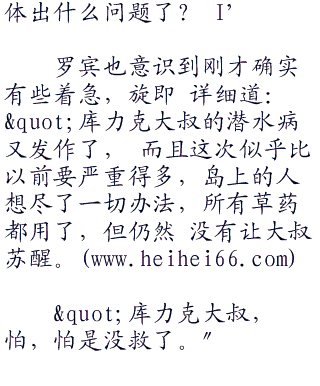 体出什么问题了？ I’
罗宾也意识到刚才确实
有些着急，旋即 详细道：
&quot;库力克大叔的潜水病
又发作了， 而且这次似乎比
以前要严重得多，岛上的人
想尽了一切办法，所有草药
都用了，但仍然 没有让大叔
苏醒。(www.heihei66.com)
&quot;库力克大叔，
怕，怕是没救了。”